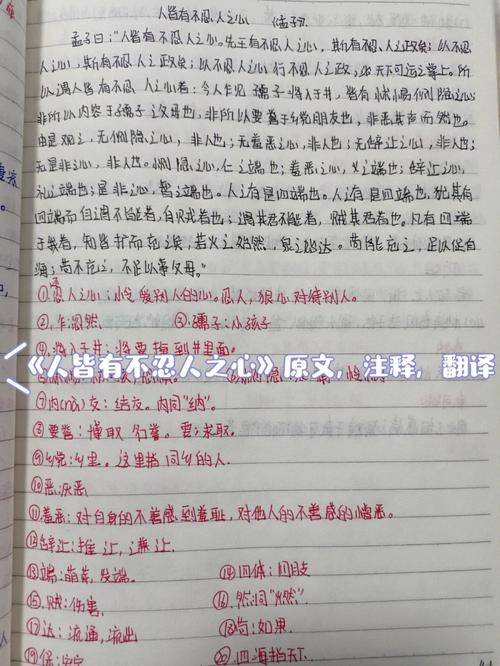 人皆有不忍人之心 《孟子》
孟子曰:"人皆有不忍人之心。先王有不忍人之心,斯有不忍人之政矣;以不忍
人之心,斯有不忍人之政矣;以不忍人之心,行不忍人之政,天下可运之掌上。所
以谓人皆有不忍人之心者:今人乍见孺子将入于井,皆有怵惕恻隐之心
非所以内交于孺子之父母也,非所以要誉于乡党朋友也,非恶其声而然也。
由是观之,无恻隐之心,非人也;无羞恶之心,非人也;无辞让之心,非人也;
无是非之心,非人也。恻隐之心,仁之端也;羞恶之心,义之端也;辞让之心,
礼之端也;是非之心,智之端也。人之有是四端也。人之有是四端也,犹其有
四端而自谓不能者,自贼者也;谓其君不能者,贼其君者也。凡有四端
于我者,知皆扩而充之矣,若火之始然,泉之始达。苟能充之,足以保四
海;苟不充之,不足以事父母。"
①忍人之心:怜爱别人的心。忍人,狠心对待别人。
②乍:忽然。 ③孺子:小孩子
④将入于井:将要掉到井里面。
《人皆有不忍人之心》原文,注释,翻译
⑦内(nà)交:结交。内同"纳"。
⑧要誉:博取名誉。要:求取。
⑨乡党:乡里。这里指同乡的人.
⑩恶:厌恶
⑪羞恶:对自身的不善感到羞耻,对他人的不善感的憎恶。
⑫辞让:推让,谦让.
⑬端:萌芽,发端. ⑭四体:四肢
⑮贼:伤害. ⑯然:同"燃".
⑰达:流通,流出 ⑱苟:如果.
⑲保:安定 ⑳四海指天下